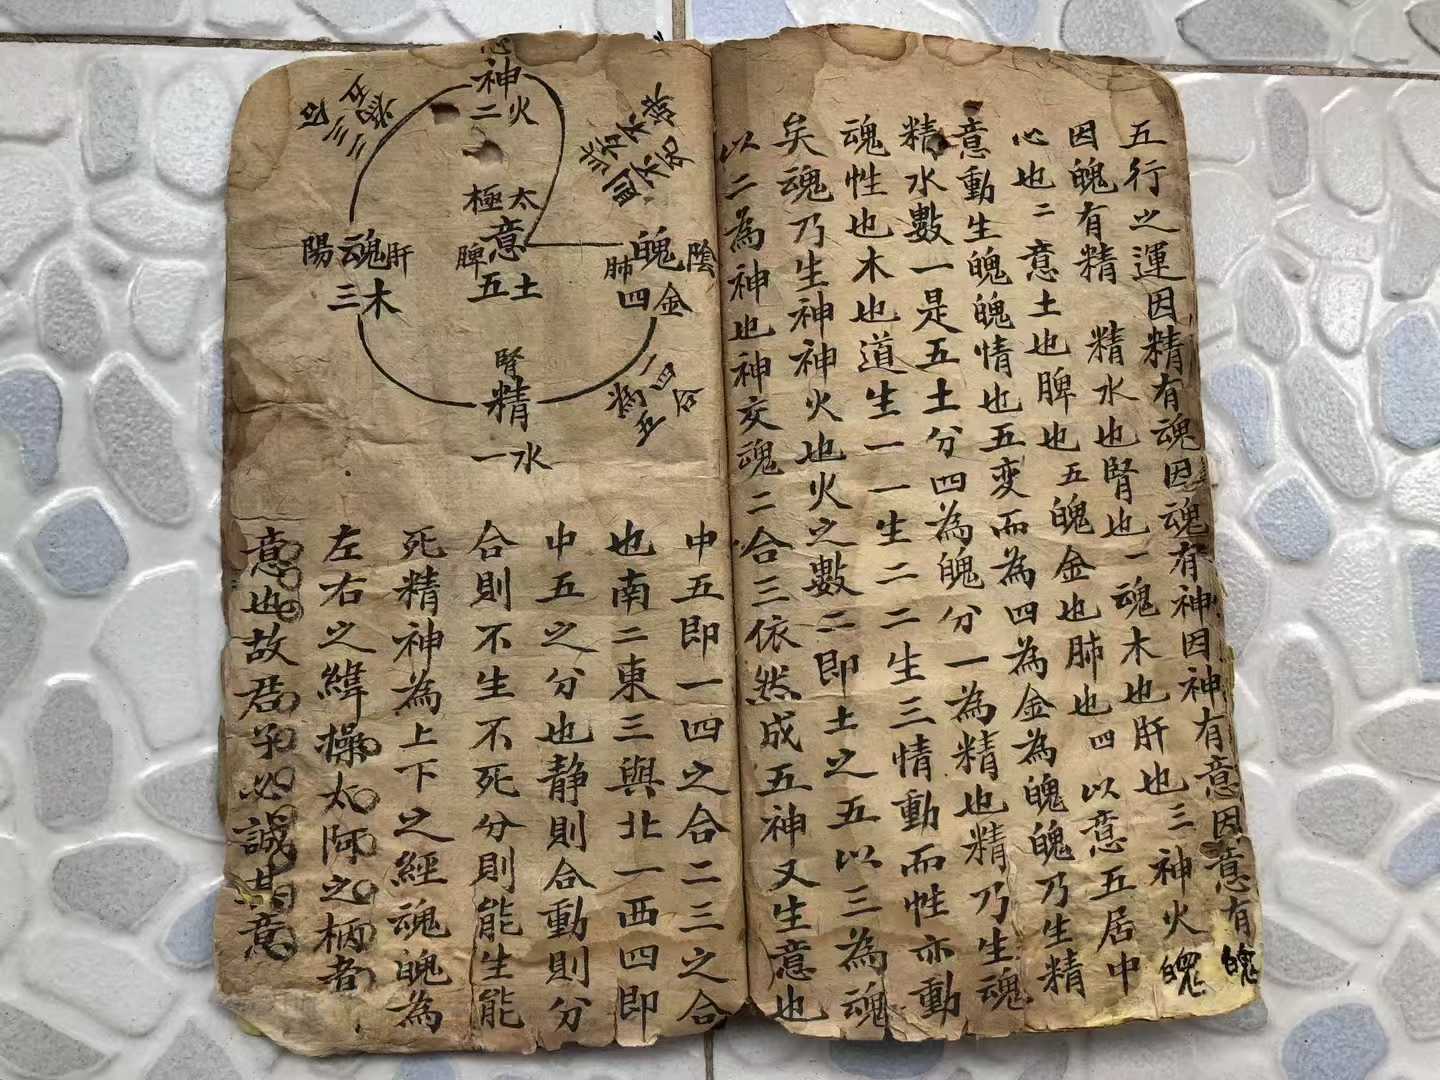 五行之運因精有魂因魂有神因神有意因意有魄
因魄有精 精水也腎也一魂木也肝也三神火魄
心也二意土也脾也五魄金也肺也四以意五居中
意動生魄魄情也五变而為四為金為魄魄乃生精
精水數一是五土分四為魄分一為精也精乃生魂
魂性也木也道生一一生二二生三情動而性亦動
矣魂乃生神神火也火之數二即土之五以三為魂
以二為神也神交魂二合三依然成五神又生意也
心
神
二火
太極
意
脾
五土
陽魂肝
三木
肺魄陰
四金
腎
精
一水
二三合
為五
一四合
為五
中五即一四之合二三之合
也南二東三與北一西四即
中五之分也静則合動則分
合則不生不死分則能生能
死精神為上下之經魂魄為
左右之緯操太阿之柄者
意也故君子必誠其意